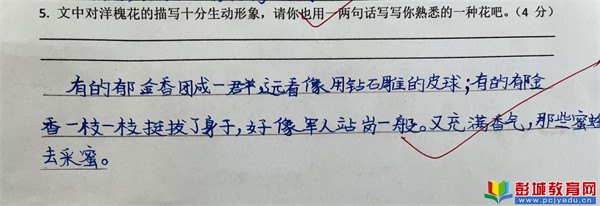 5. 文中对洋槐花的描写十分生动形象，请你也用一两句话写写你熟悉的一种花吧。（4 分）
有的郁金香团成一群，远看像用钻石雕的皮球；有的郁金
香一枝一枝挺拔了身子，好像军人站岗一般。又充满香气，那些蜜蜂
去采蜜。
彭城教育网
www.pcjyedu.cn